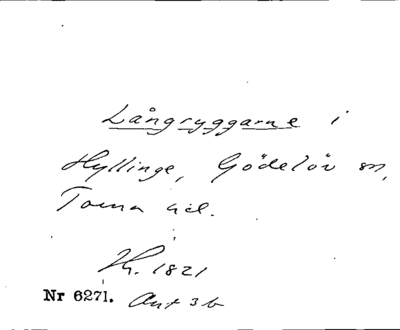 Långryggarne i
Hyllinge, Gödelöv sn,
Torna hd.
Th. 1821
Nr 6271. Ant 3b